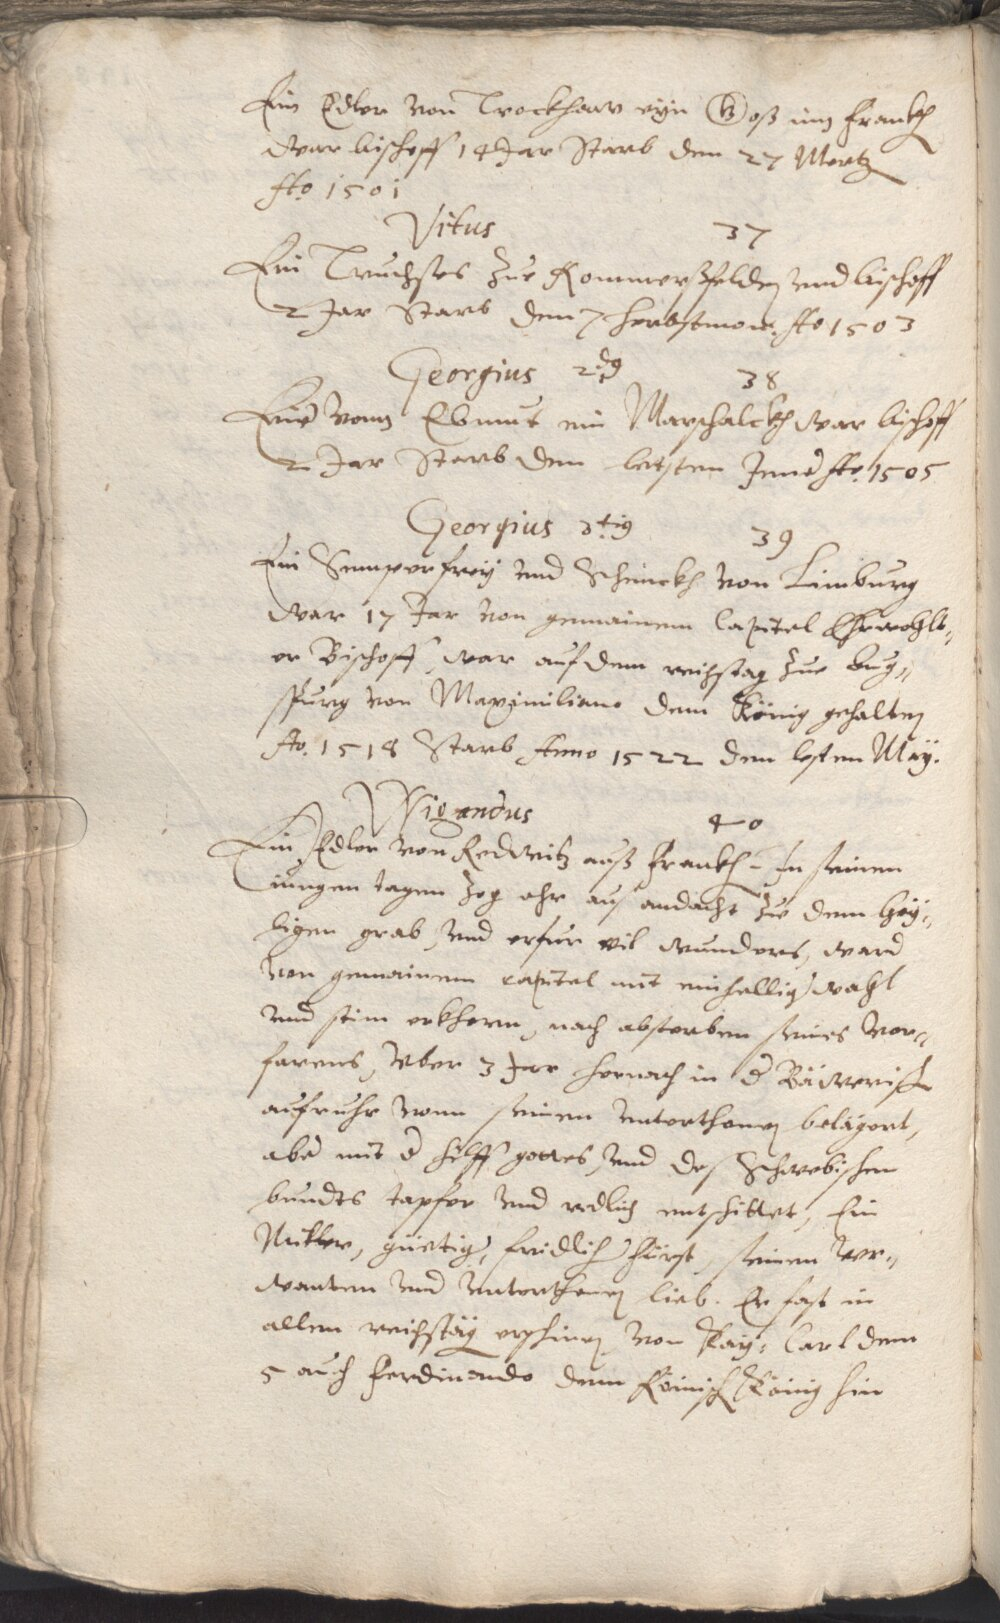 Ein Edler von Trockhaw eyn Groß inn Franckh
war bischoff 14 Jar Starb den 27 Mertz
Ao 1501
Vitus 37
Ein Truchses Zue Pommersfelden und bischoff
2 Jar Starb den 7 herbstmon. Ao 1503
Georgius 2dg 38
Einer vonn Ebnnet ein Marschalckh war bischoff
2 Jar Starb den letsten Jener Ao. 1505
Georgius 3tig 39
Ein Semperfrey und Schenckh von Limburg
war 17 Jar von gemainem Capitel Erwohlt-
er Bischoff, war auf dem reichstag Zue Aug-
spurg von Maximiliano dem König gehalten
Ao. 1518 Starb Anno 1522 den lesten May.
Wigandus 40
Ein Edler von Redwitz auß Franckh. In seinen
jungen tagen Zog ehr aus andacht Zue dem hey-
ligen grab, und erfur vil wunders, ward
von gemainem capitel mit einhellig wahl
und stim erkhorn, nach absterben seines vor-
farens, Uber 3 Jar hernach in d Bäwerisch
aufruhr vonn seinen unterthonen belägert,
aber mit d hilff gottes, und des Schwebischen
bundts tapfer und redlich entschittet, Ein
Milter, güetig, fridlich Fürst, seinen ver-
wanten und unterthonen lieb. Er hast in
allen reichstäg erschinen, von Kay: Carl dem
5 auch Ferdinando dem Römisch König hin